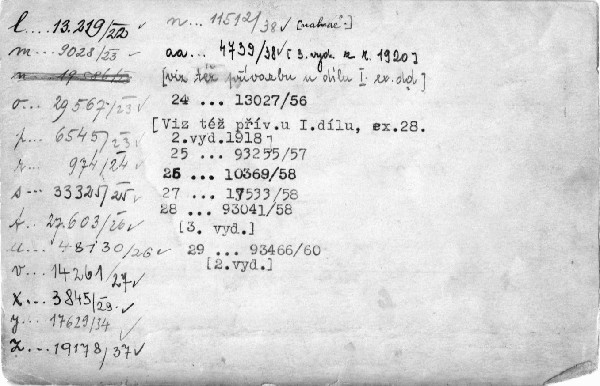 l....13.219/22 ✓
m...9028/23 ✓
n...19.086/
o...29567/23 ✓
p...6545/23 ✓
r...974/24 ✓
s...33325/25 ✓
t...27.603/26 ✓
u...48130/26 ✓
v...14261/27 ✓
x...3845/29 ✓
y...17629/34 ✓
z...19178/37 ✓
n...11512/38 ✓ [nahrač.]
aa...4739/38 ✓ [3. vyd. z r. 1920]
[viz též přívazbu u dílu I. ex. dd]
24 ... 13027/56
[Viz též přív.u I.dílu, ex.28.
2.vyd.1918]
25 ... 93255/57
26 ... 10369/58
27 ... 17533/58
28 ... 93041/58
[3. vyd.]
29 ... 93466/60
[2.vyd.]